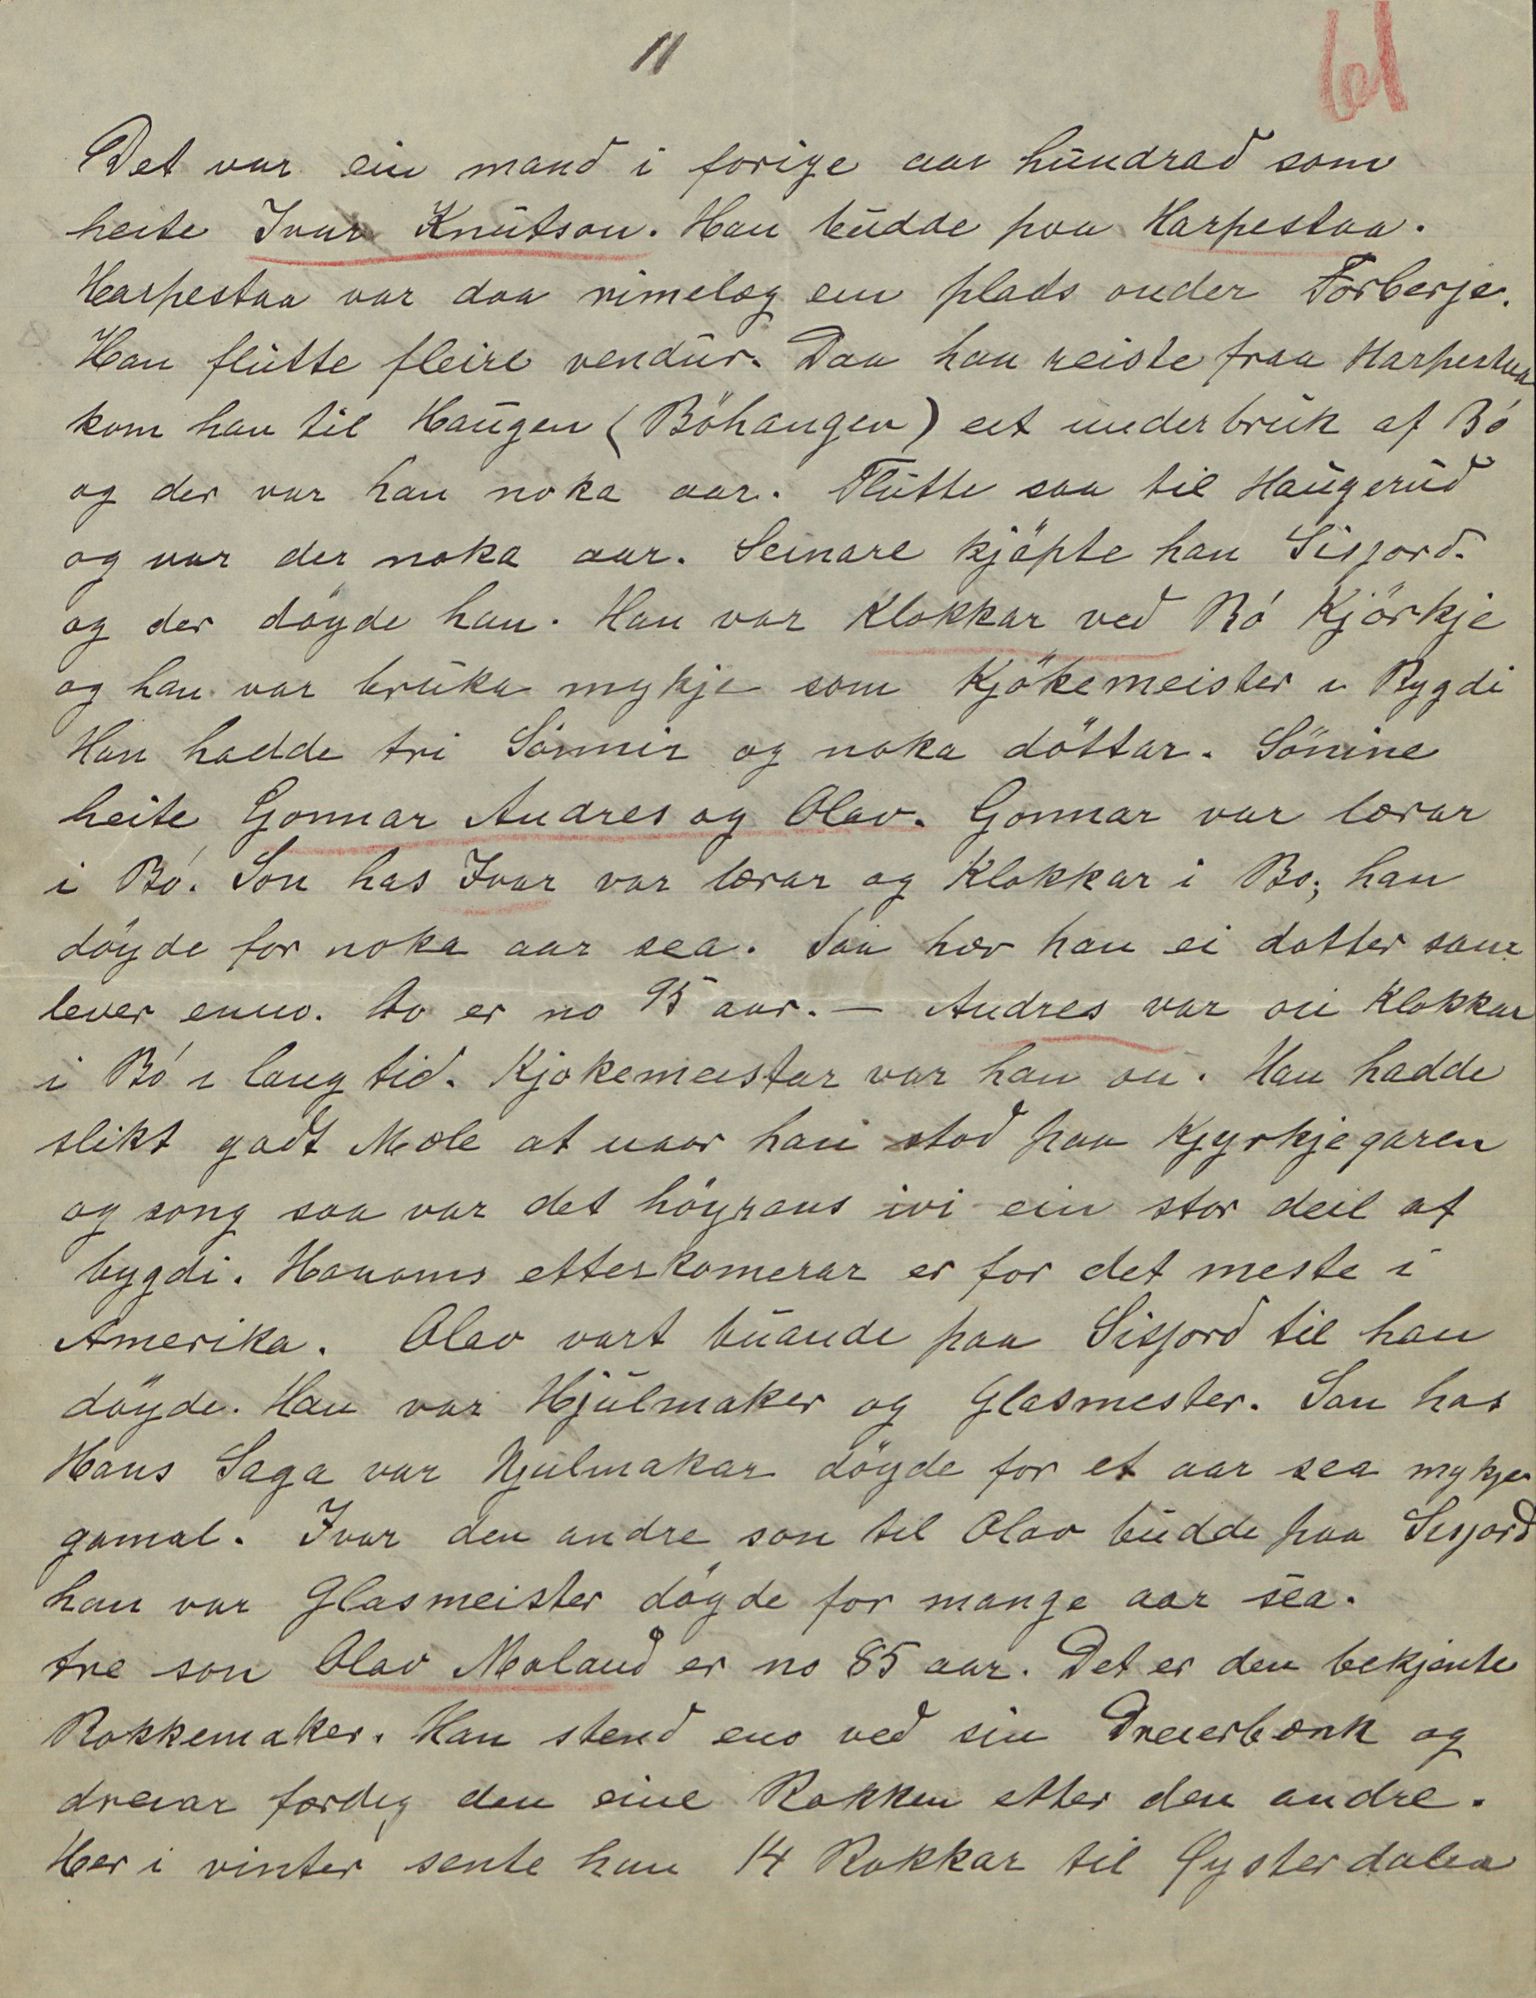 11
61
Det var ein mand i forige aar hundrad som
heite Ivar Knutson. Han budde paa Harpestaa.
Harpestaa var daa rimeleg ein plads onder Forberje.
Han flutte fleire vendur. Daa han reiste fraa Harpestaa
kom han til Haugen (Böhaugen) eit underbruk af Bó
og der var han noka aar. Flutte saa til Haugerud
og var der noka aar. Seinare kjöpte han Sisjord.
og der döyde han. Han var Klokkar ved Bó Kjörkje
og han var bruka mykje som Kjökemeister i Bygdi
Han hadde tri Sönnir og noka döttar. Sönine
heite Gonnar Andres og Olav. Gonnar var lærar
i Bó. Son has Ivar var lærar og Klokkar i Bo; han
döyde for noka aar sea. Saa hev han ei dotter som
lever enno. Ho er no 95 aar. — Andres var ou Klokkar
i Bó i lang tid. Kjokemeistar var han ou. Han hadde
slikt godt Mæle at naar han stod paa Kjyrkjegaren
og song saa var det höyrans ivi ein stor deil af
bygdi. Honoms etterkomerar er for det meste i
Amerika. Olav vart buande paa Sisjord til han
döyde. Han var Hjulmaker og Glasmester. Son has
Hans Saga var Hjulmakar döyde for et aar sea mykje
gamal. Ivar den andre son til Olav budde paa Sisjord
han var Glasmeister döyde for mange aar sea.
tre son Olav Moland er no 85 aar. Det er den bekjente
Rokkemaker. Han stend eno ved sin Dreierbænk og
dreiar fordig den eine Rokken etter den andre.
Her i vinter sente han 14 Rokkar til Øysterdalen